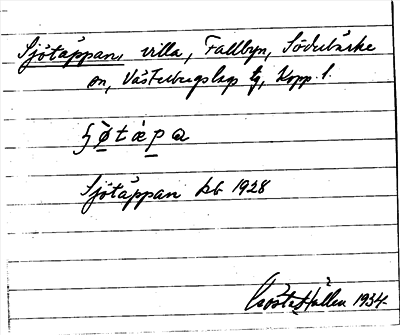 Sjötäppan, villa, Fallbyn, Söderbärke
sn, Västerbergslags tg, Kopp. l.
Sjötäppan kb 1928
Gösta Hallén 1934.